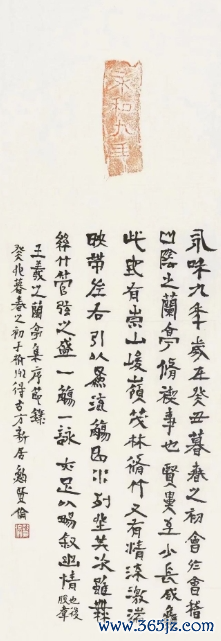 永和九年
永和九年歲在癸丑暮春之初會於會稽
山陰之蘭亭脩禊事也賢畢至少長咸集
此地有崇山峻嶺茂林脩竹又有清流激湍
映帶左右引以為流觴曲水列坐其次雖無
絲竹管弦之盛一觴一詠亦足以暢敘幽情也後
王羲之蘭亭集序節錄
癸兆暮春之初於得古方新居